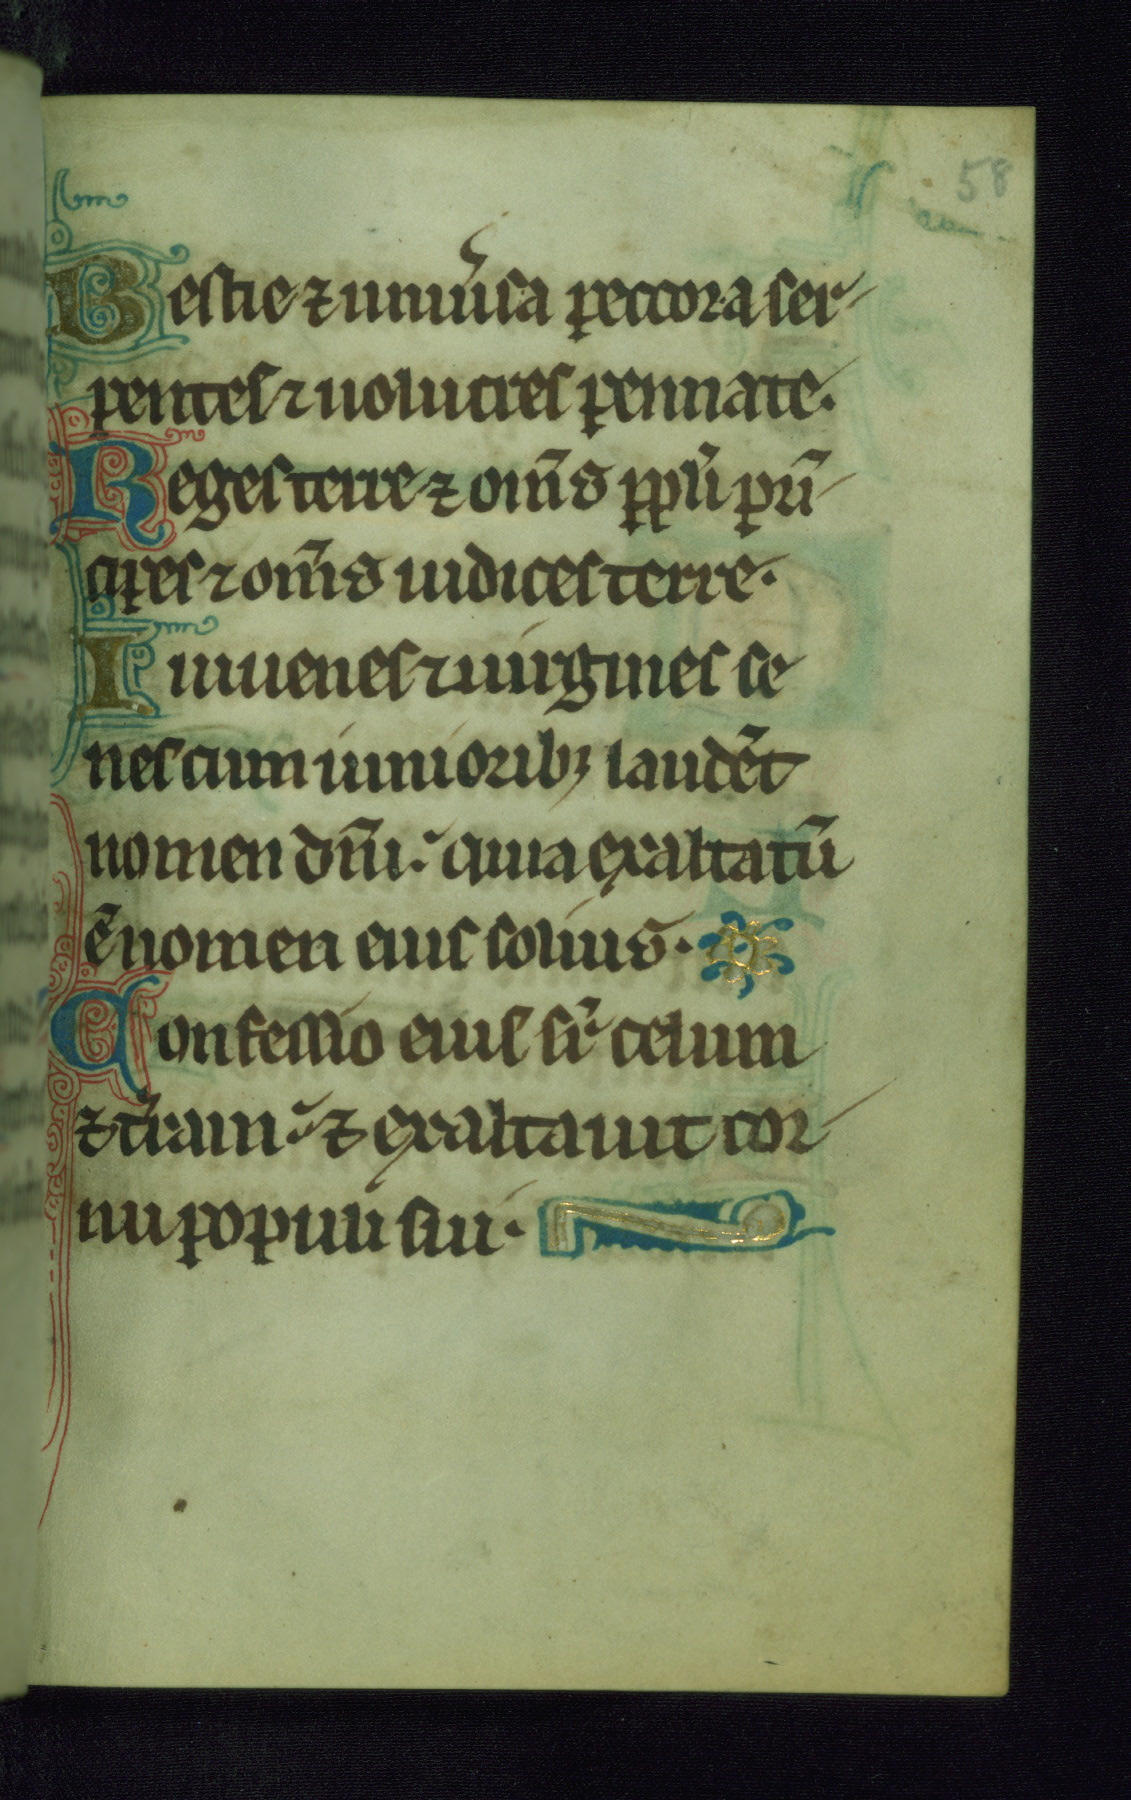 58
Bestie ⁊ uniũsa peccora ser
pentes ⁊ uolucres pennate.
Reges terre ⁊ om̃s pplĩ prĩ
cipes ⁊ om̃s iudices terre.
Iuuenes ⁊ uirgines se
nes cum iunioribꝫ laudẽt
nomen dm̃i. quia exaltatũ
ẽ nomen eius solius.
Confessio eius sr̃ celum
⁊ tr̃am. ⁊ exaltauit cor
nu populi sui.